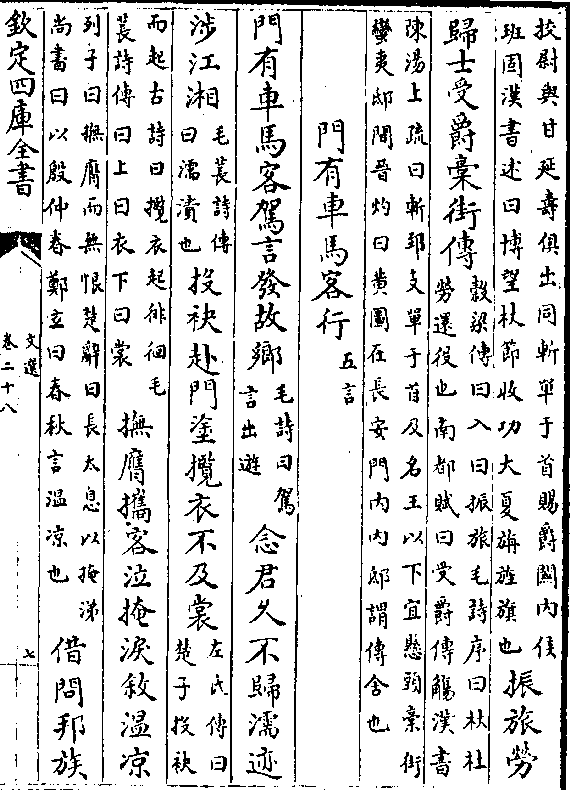 挍尉與甘延壽俱出同斬單于首賜爵關内侯
班固漢書述曰博望杖節收功大夏旃旌旗也
振旅勞
歸士受爵稾街傳
榖梁傳曰入曰振旅毛詩序曰杕杜
勞還役也南都賦曰受爵傳觴漢書
陳湯上疏曰斬郅支單于首及名王以下宜懸頭稾街
蠻夷邸間晉灼曰黄圖在長安門内内邸謂傳舍也
門有車馬客行
五言
門有車馬客駕言發故鄉
毛詩曰駕
言出遊
念君久不歸濡迹
涉江湘
毛萇詩傳
曰濡漬也
投袂赴門塗攬衣不及裳
左氏傳曰
楚子投袂
而起古詩曰攬衣起徘徊毛
萇詩傳曰上曰衣下曰裳
撫膺攜客泣掩淚敘溫凉
列子曰撫膺而無恨楚辭曰長太息以掩涕
尚書曰以殷仲春鄭玄曰春秋言溫凉也
借問邦族
欽定四庫全書
文選
卷二十八
七